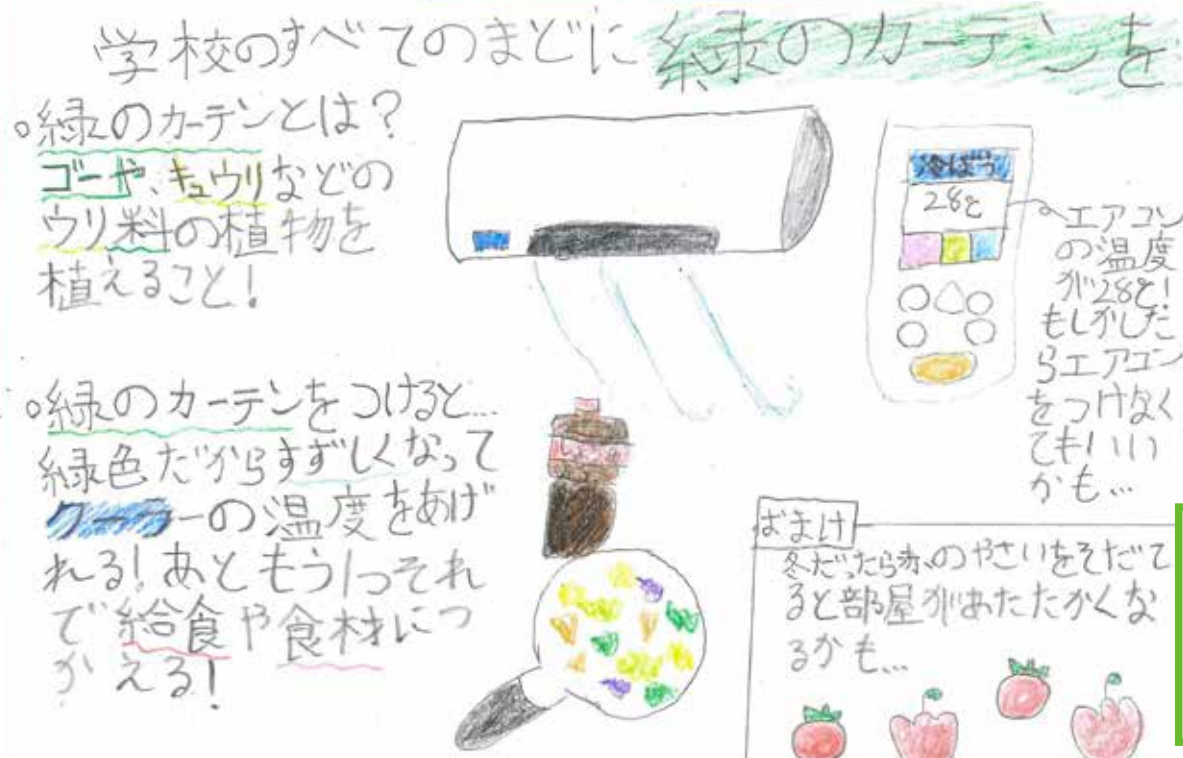 学校のすべてのまどに緑のカーテンを
。緑のカーテンとは？
ゴーヤ、キュウリなどの
ウリ料の植物を
植えること！
。緑のカーテンをつけると…
緑色だからすずしくなって
クーラーの温度をあげ
れる！あともう1つそれ
で給食や食材につ
かえる！
冷ぼう
28℃
エアコン
の温度
が28℃！
もしかした
らエアコン
をつけなく
てもいい
かも…
しょうゆ
おまけ
冬だったら赤のやさいをそだて
ると部屋があたたかくな
るかも…